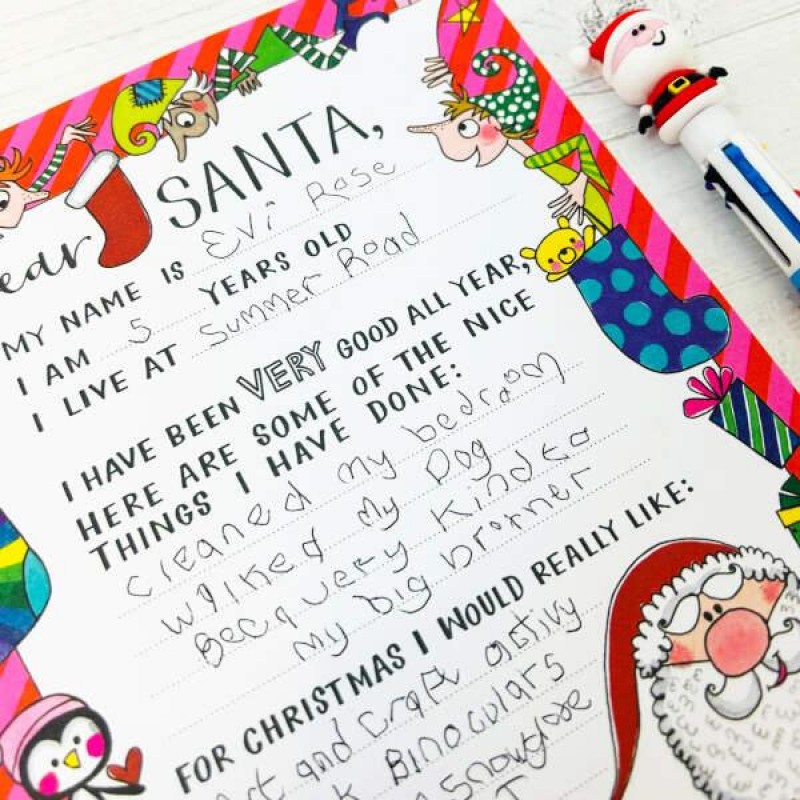 ear SANTA,
MY NAME IS Evi Rose
I AM 5 YEARS OLD
I LIVE AT Summer Road
I HAVE BEEN VERY GOOD ALL YEAR,
HERE ARE SOME OF THE NICE
THINGS I HAVE DONE:
cleaned my bedroom
walked my Dog
very Kind to
my big brother
FOR CHRISTMAS I WOULD REALLY LIKE:
and craft activy
Binoculars
a snowglobe